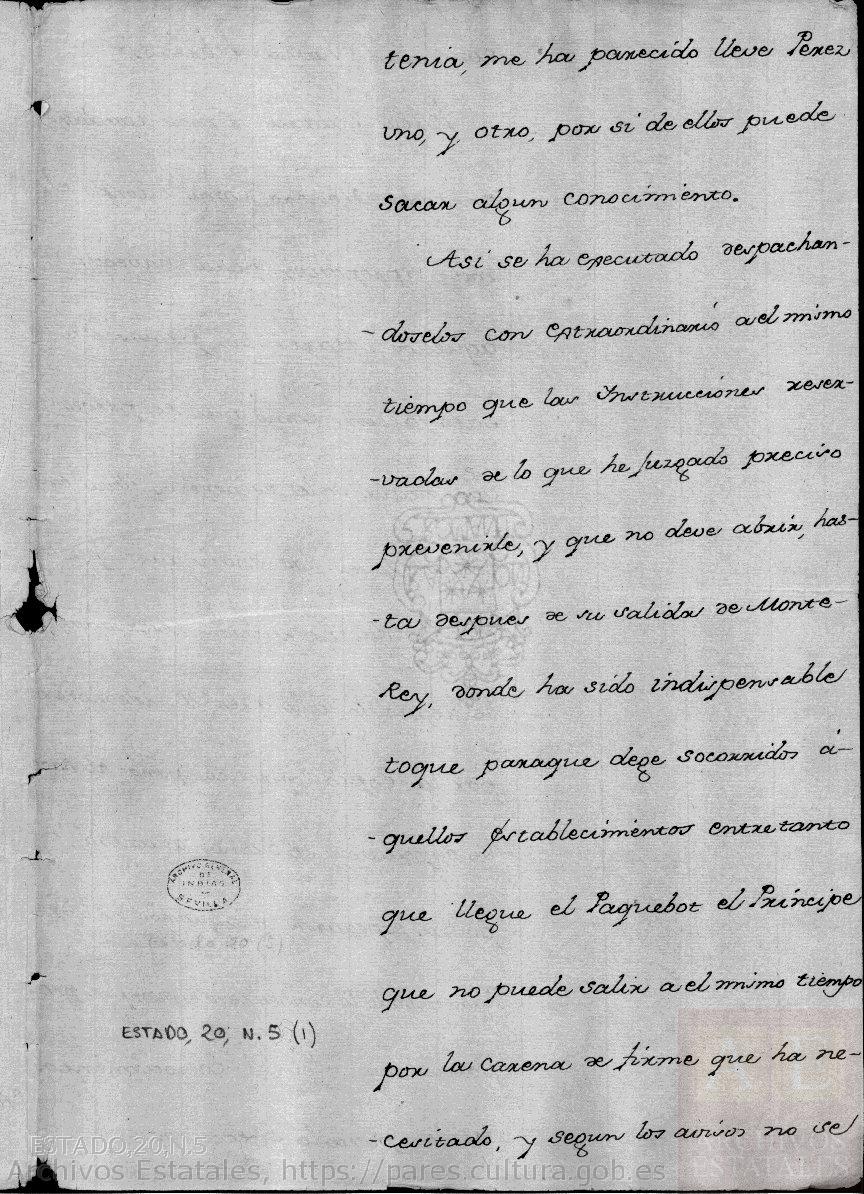 tenia, me ha parecido lleve Perez
uno, y otro, por si de ellos puede
sacar algun conocimiento.
Asi se ha executado despachan-
-doselos con extraordinario a el mismo
tiempo que las Ynstrucciones reser-
-vadas de lo que he juzgado preciso
prevenirle, y que no deve abrir, has-
-ta despues de su salida de Monte-
Rey, donde ha sido indispensable
toque paraque dege socorridos á-
-quellos establecimientos entretanto
que llegue el Paquebot el Principe
que no puede salir a el mismo tiempo
por la carena de firme que ha ne-
-cesitado, y segun los avisos no se
ARCHIVO GENERAL
DE
INDIAS
SEVILLA
ESTADO, 20, N. 5 (1)
ESTADO,20,N.5
Archivos Estatales, https://pares.cultura.gob.es